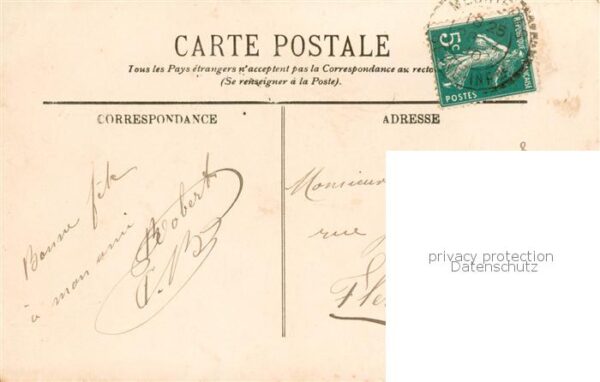 CARTE POSTALE
Tous les Pays étrangers n'acceptent pas la Correspondance au recto
(Se renseigner à la Poste).
CORRESPONDANCE
ADRESSE
5c
POSTES
Bonne fête
à mon ami
Robert
Monsieur
rue
privacy protection
Datenschutz